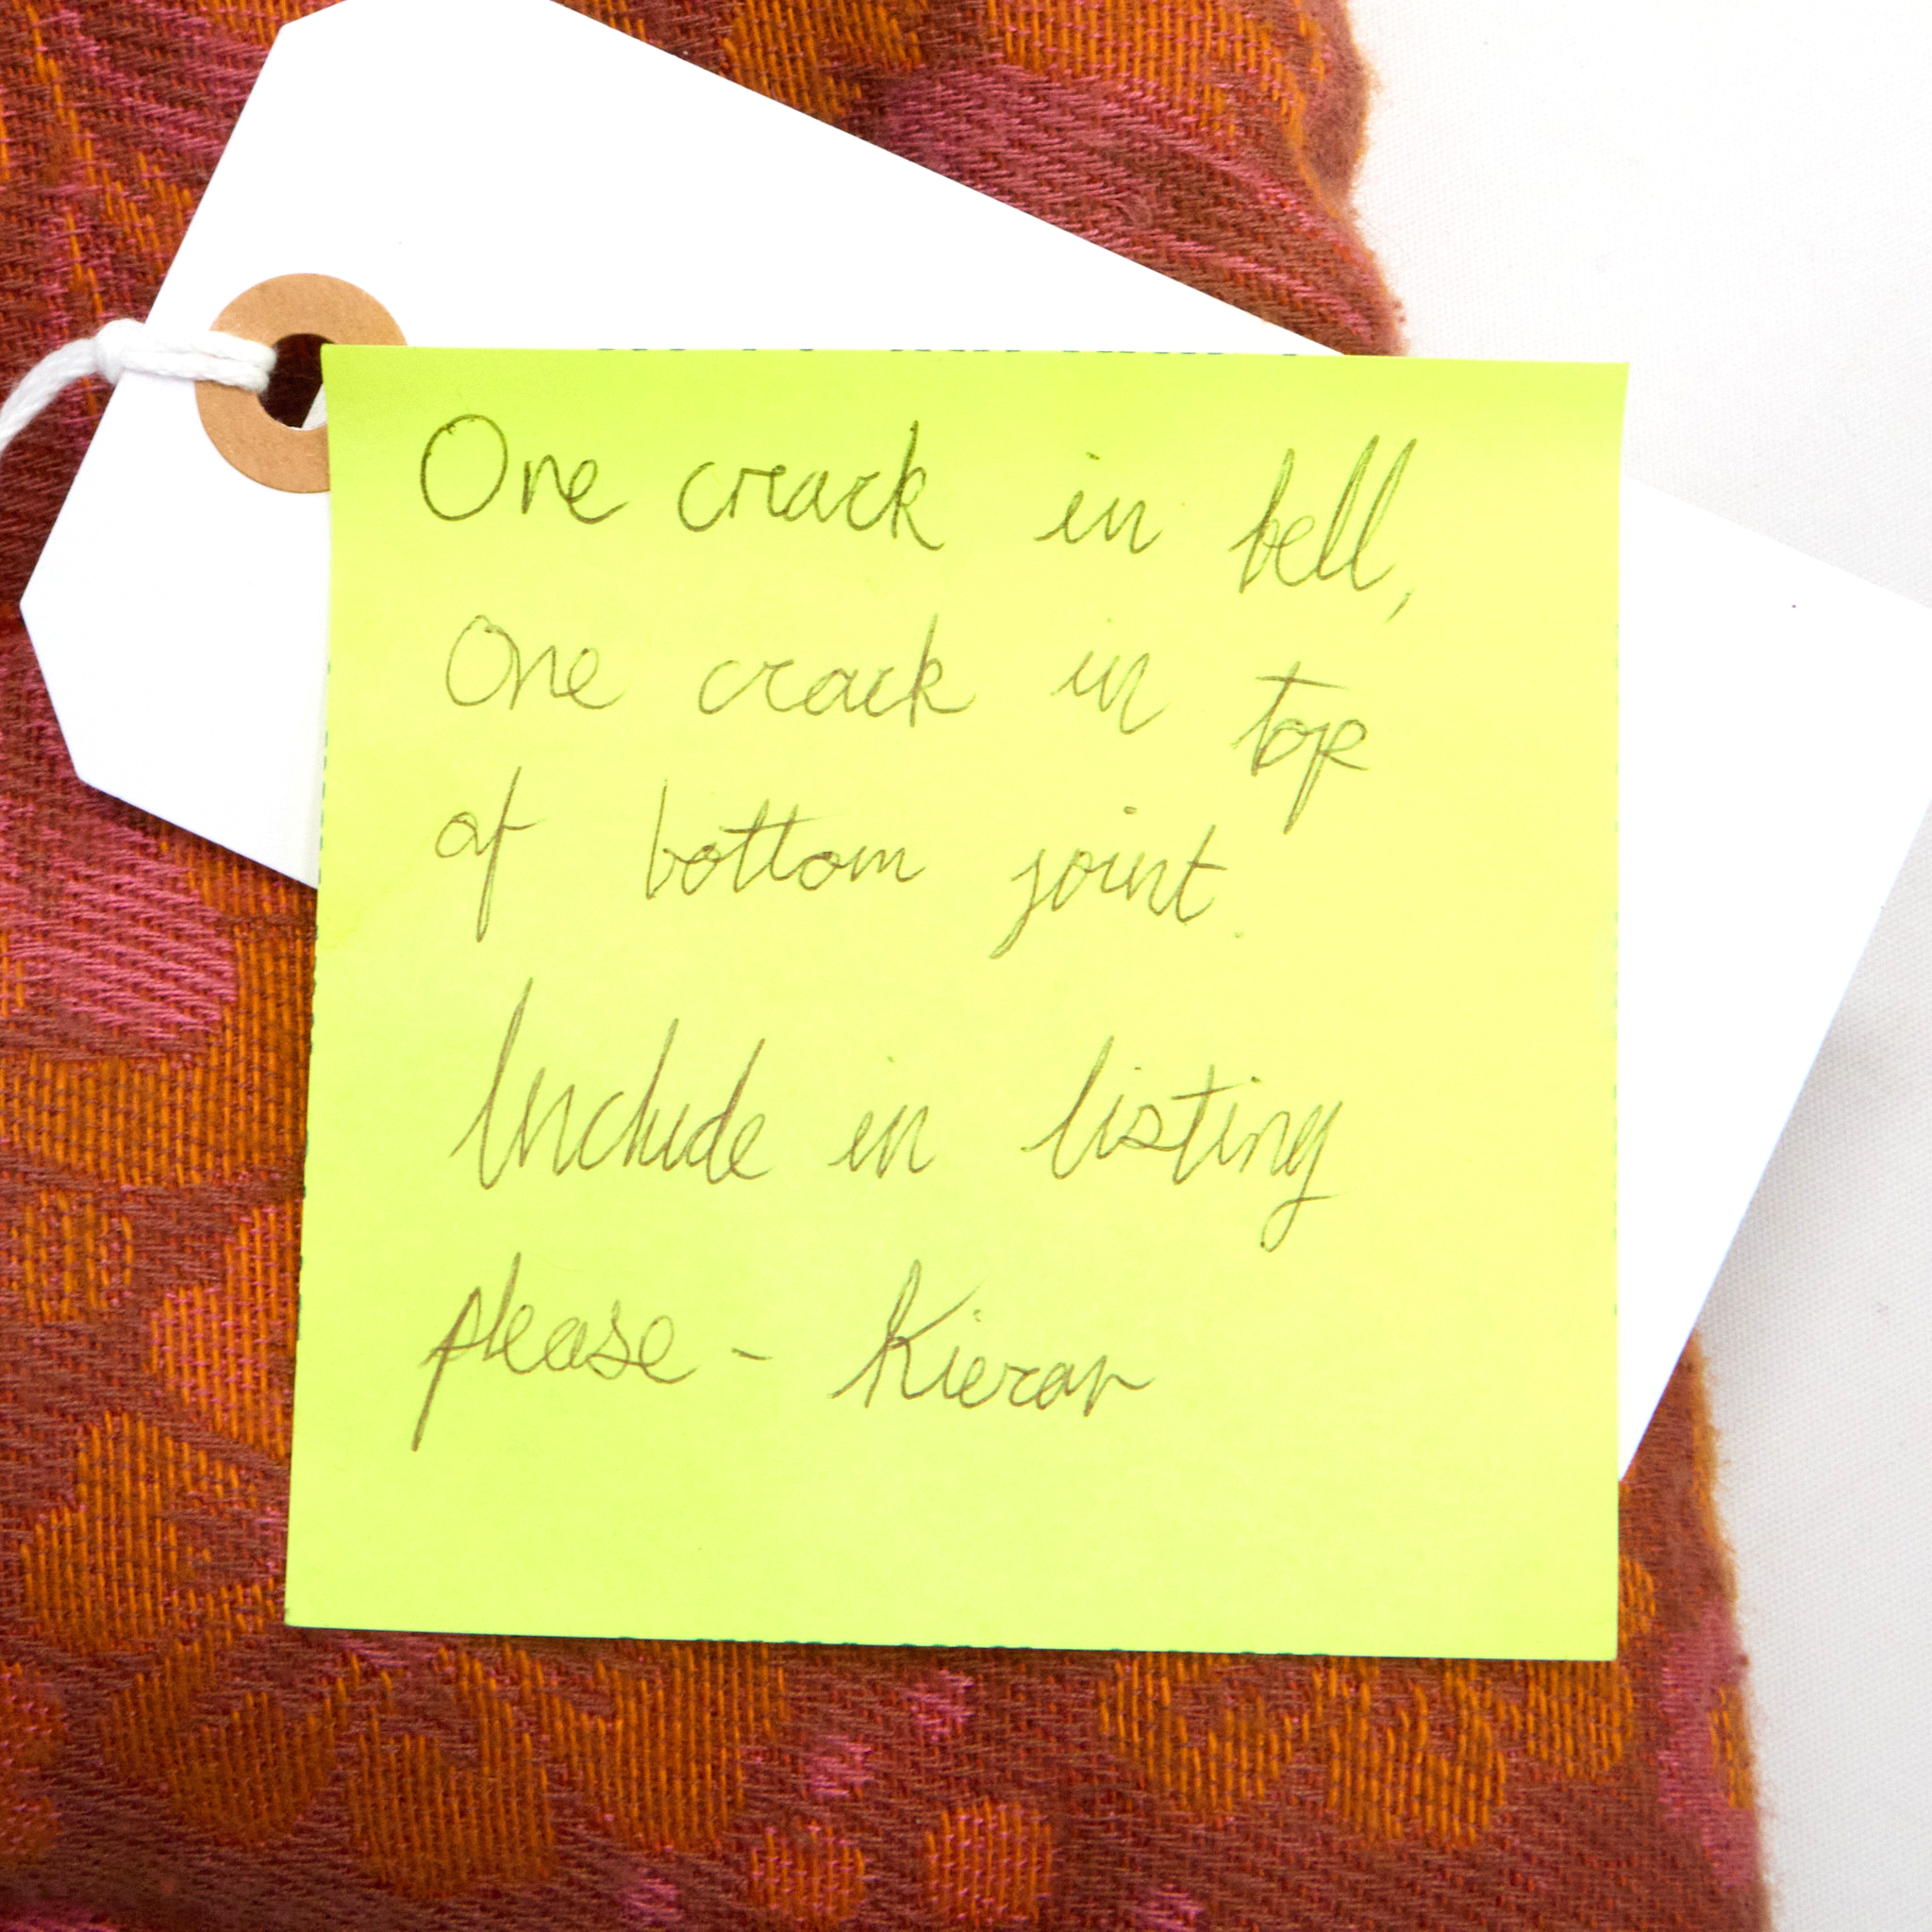 One crack in bell,
One crack in top
of bottom joint.
Include in listing
please - Kieran